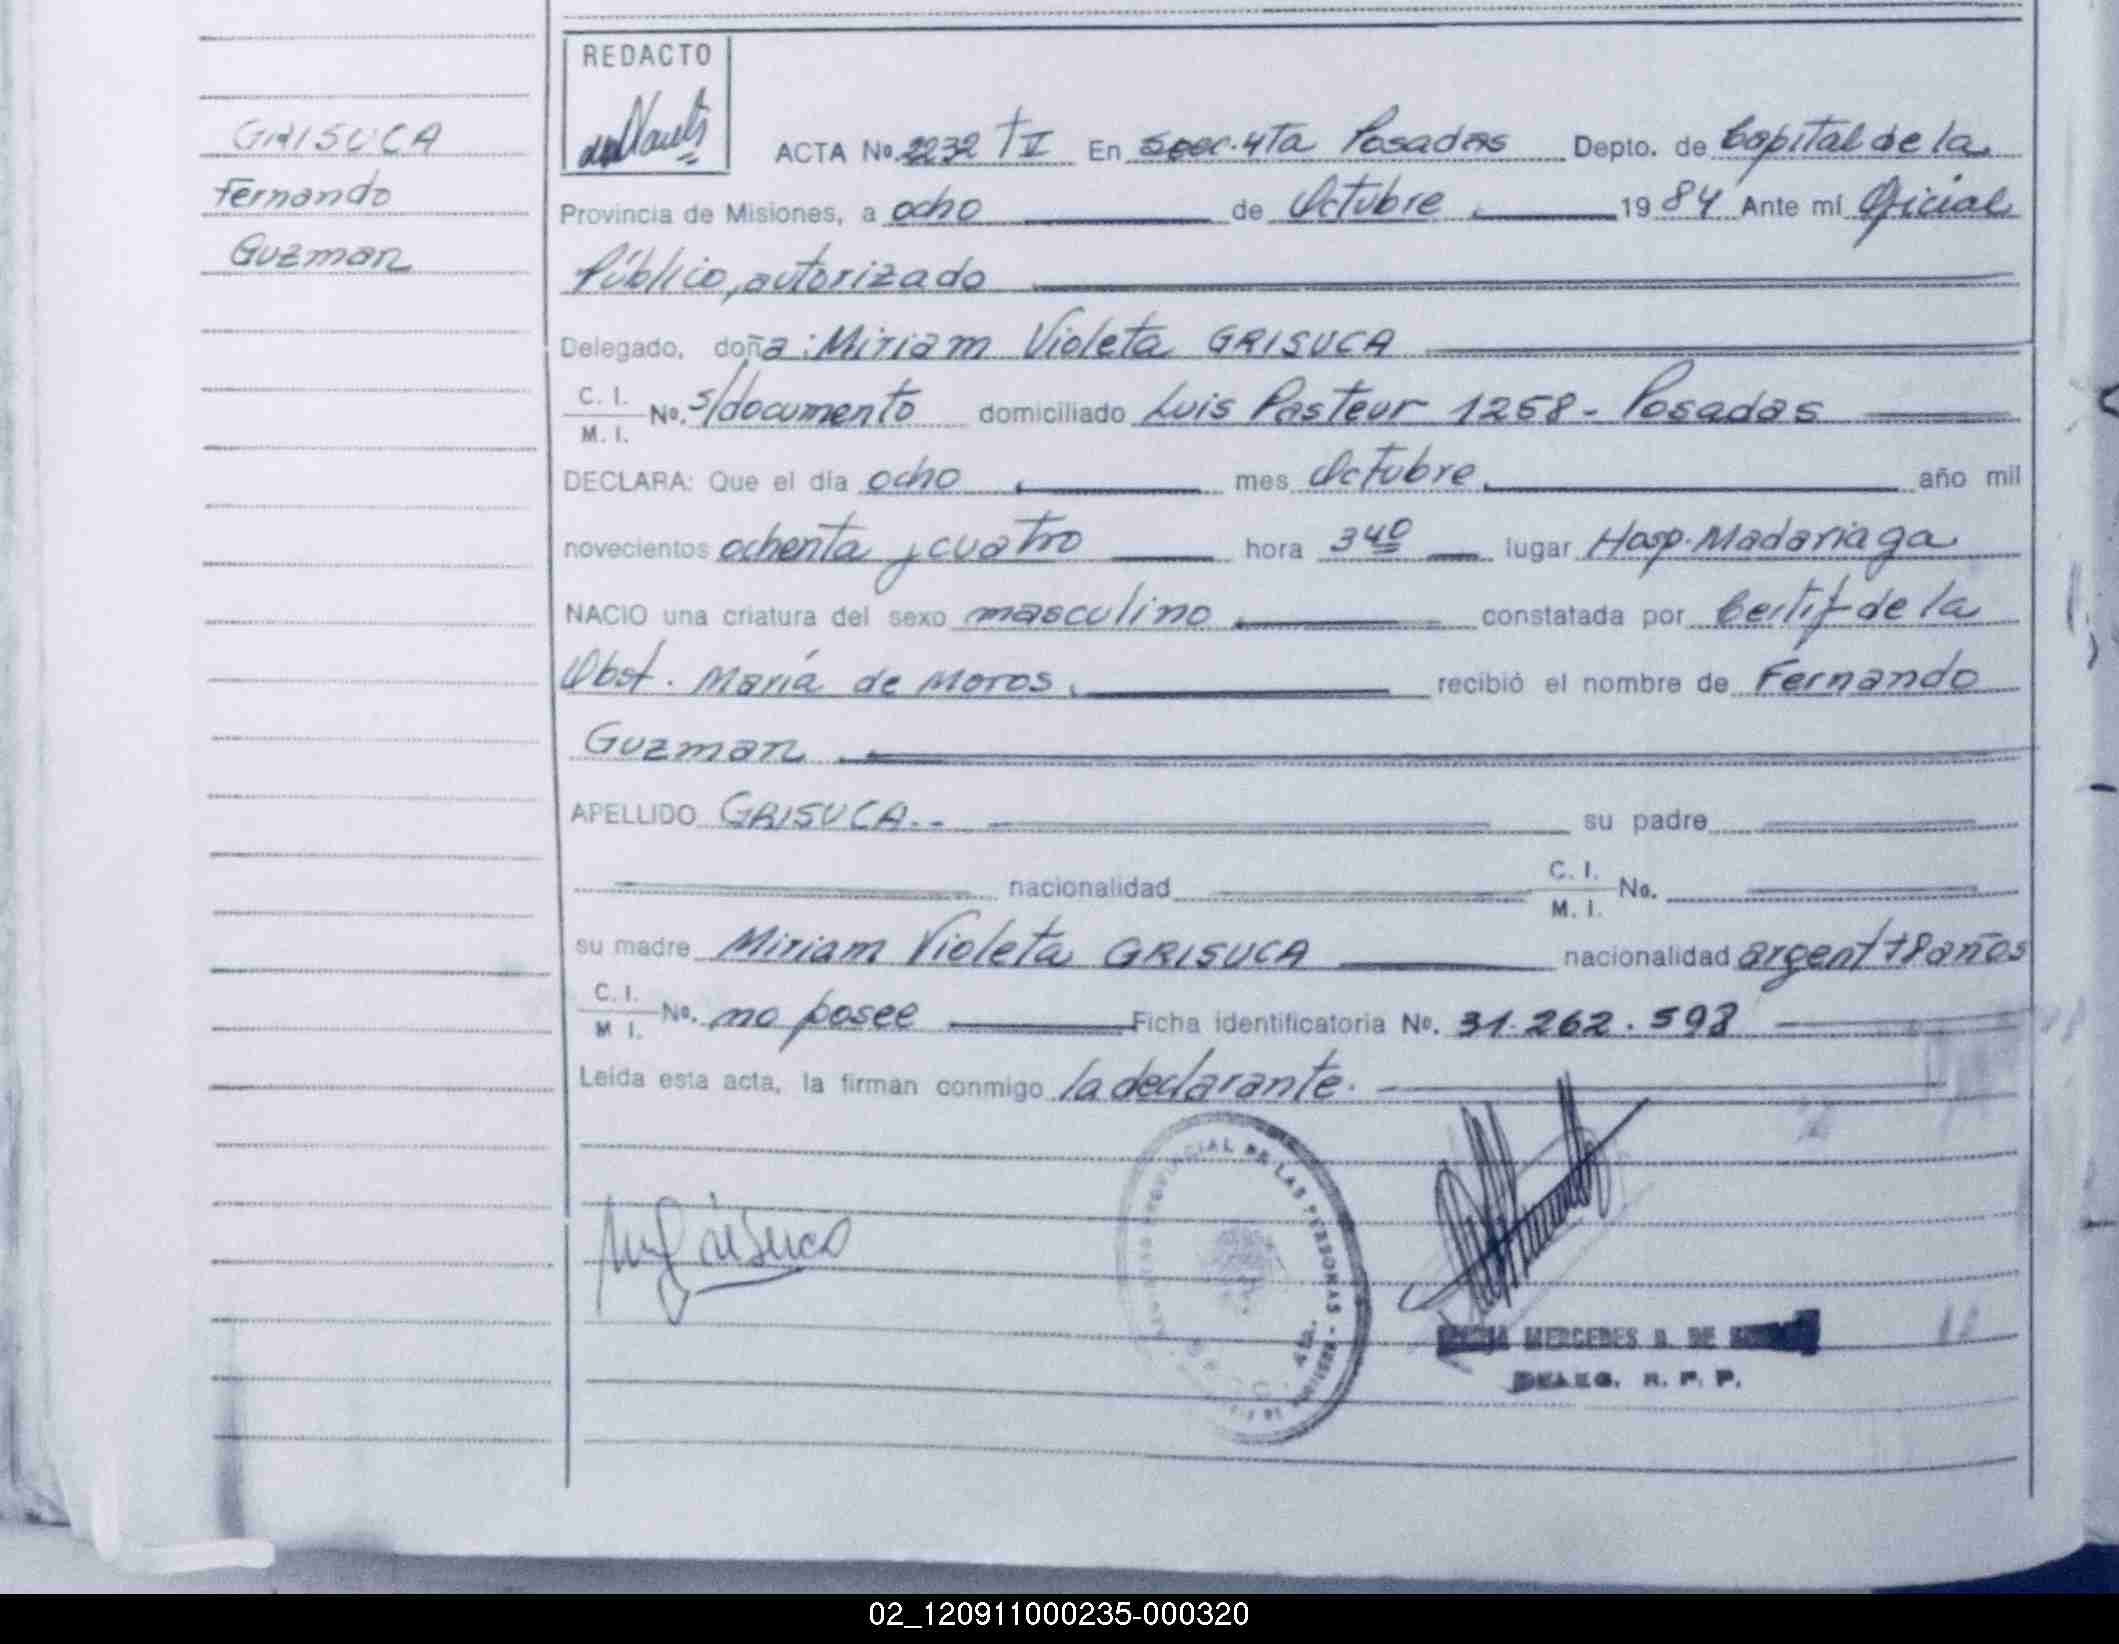 REDACTO
GRISUCA
Fernando
Guzman
ACTA No. 2232 T II En Secc. 4ta Posadas Depto. de Capital de la
Provincia de Misiones, a ocho de Octubre 1984 Ante mí Oficial
Público, autorizado
Delegado, doña: Miriam Violeta GRISUCA
C. I.
M. I. No. s/documento domiciliado Luis Pasteur 1258 - Posadas
DECLARA: Que el día ocho mes Octubre año mil
novecientos ochenta y cuatro hora 3 40 lugar Hosp. Madariaga
NACIO una criatura del sexo masculino constatada por Certif. de la
Obst. María de Moros recibió el nombre de Fernando
Guzman
APELLIDO GRISUCA.- su padre
nacionalidad C. I.
M. I. No.
su madre Miriam Violeta GRISUCA nacionalidad argent 18 años
C. I.
M. I. No. no posee Ficha identificatoria No. 31.262.598
Leída esta acta, la firman conmigo la declarante.
PROVINCIAL DE LAS PERSONAS
MERCEDES
DELEG. R. P. P.
02_120911000235-000320